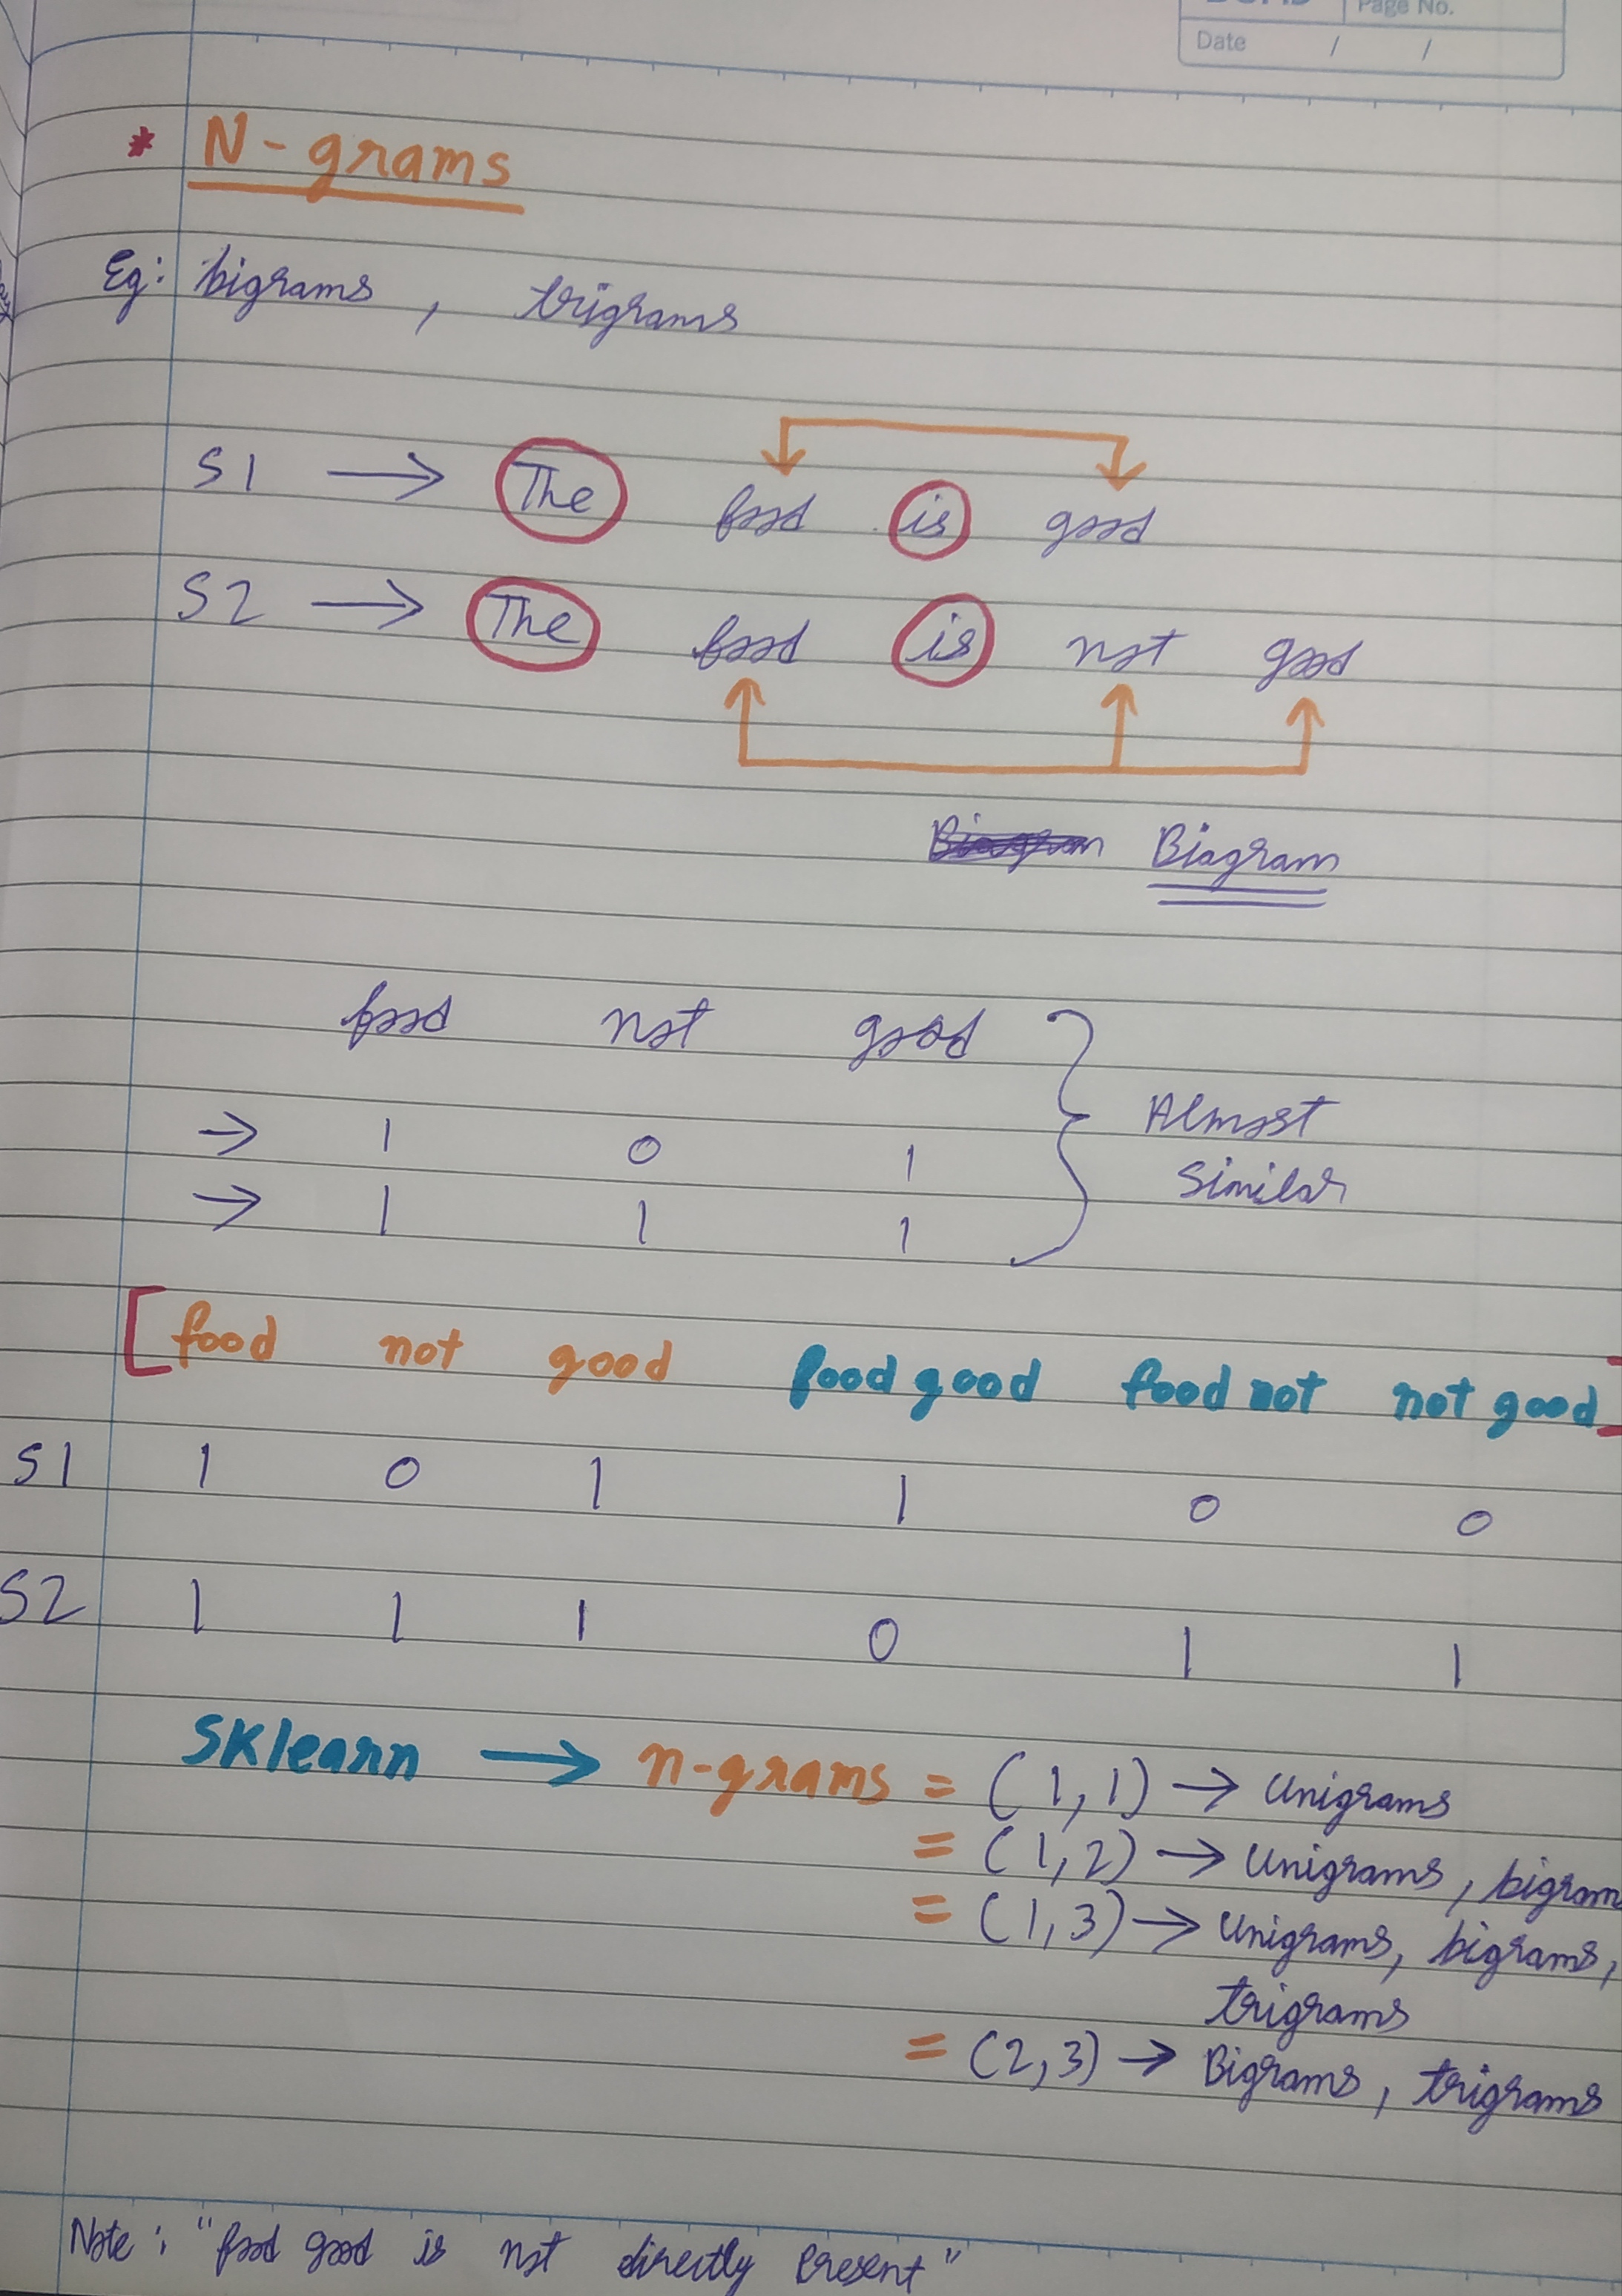 Page No.
Date / /
* N-grams
Eg: bigrams , trigrams
S1 → The food is good
S2 → The food is not good
Biagram
food not good
→ 1 0 1
→ 1 1 1
Almost
Similar
[food not good food good food not not good]
S1 1 0 1 1 0 0
S2 1 1 1 0 1 1
SKlearn → n-grams = (1,1) → Unigrams
= (1,2) → Unigrams, bigram
= (1,3) → Unigrams, bigrams,
trigrams
= (2,3) → Bigrams, trigrams
Note: "food good is not directly Present"